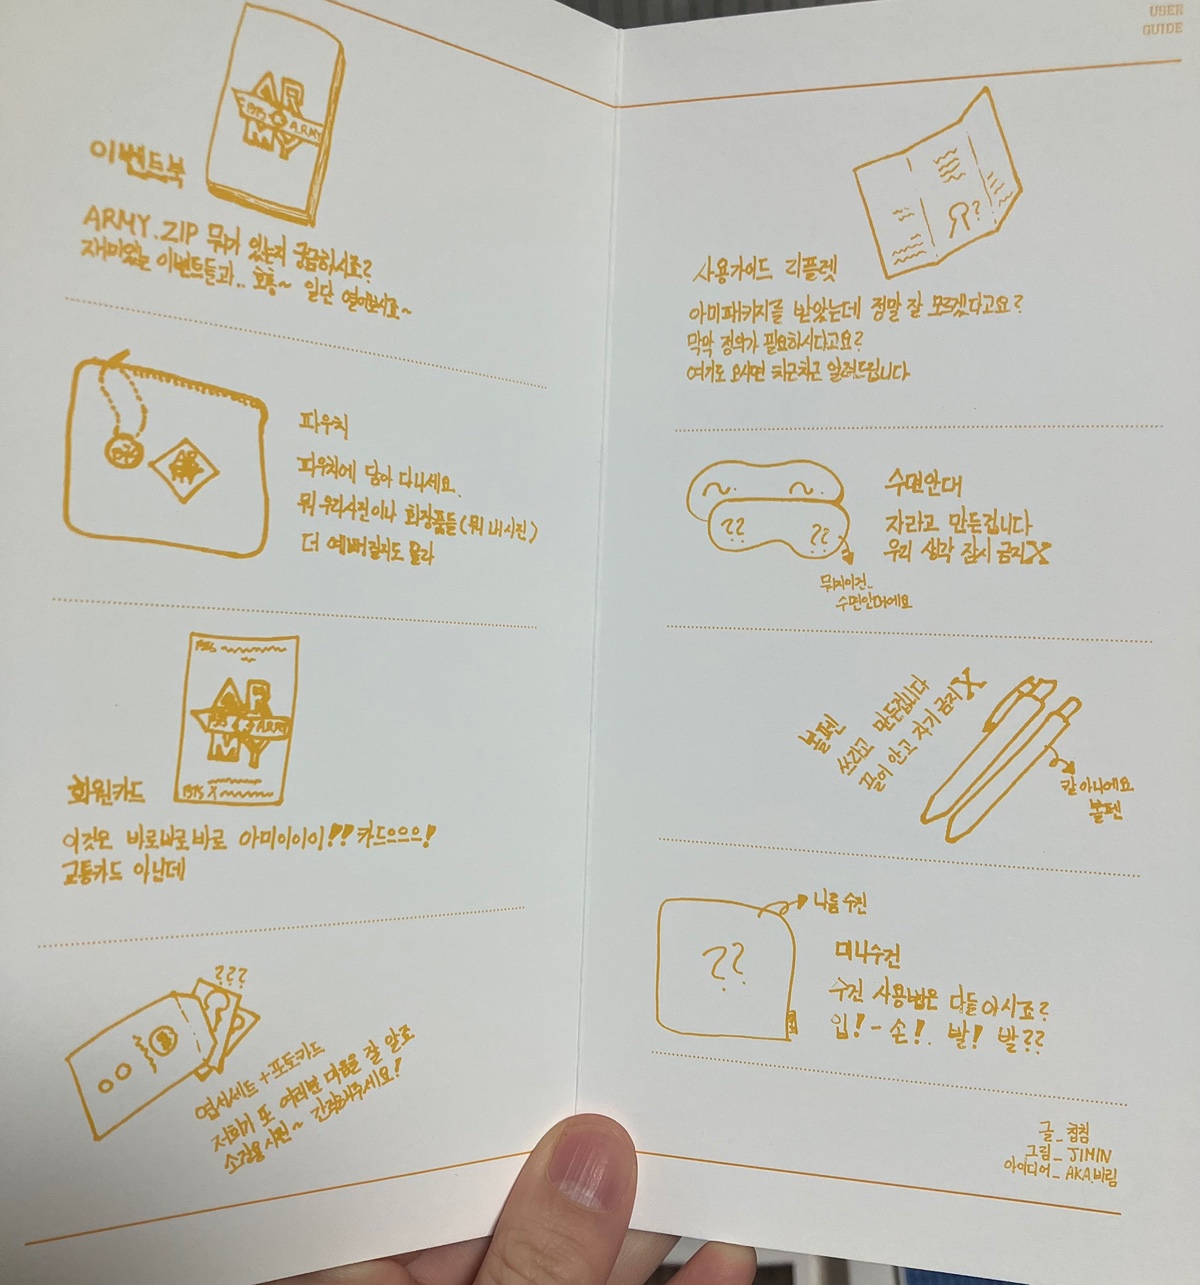 이벤트북
ARMY.ZIP 뭐가 있는지 궁금하시죠?
재미있는 이벤트들과.. 호홍~ 일단 열어보시죠~
파우치
파우치에 담아 다니세요.
뭐 우리사진이나 화장품들(뭐 내사진)
더 예뻐질지도 몰라
회원카드
이것은 바로바로바로 아미이이이!!카드으으으!
교통카드 아닌데
???
엽서세트+포토카드
저희가 또 여러분 마음을 잘 알죠
소장용사진~ 간직해주세요!
USER
GUIDE
사용가이드 리플렛
아미패키지를 받았는데 정말 잘 모르겠다고요?
막막 정의가 필요하시다고요?
여기로 오시면 차근차근 알려드립니다
수면안대
자라고 만든겁니다
우리 생각 잠시 금지X
??
??
뭐지이건..
수면안대에요
볼펜
쓰라고 만든겁니다
끌어 안고 자기 금지X
칼 아니에요
볼펜
나름 수건
??
미니수건
수건 사용법은 다들 아시죠?
입!-손!. 발! 발??
글_침침
그림_JIMIN
아이디어_AKA.비림